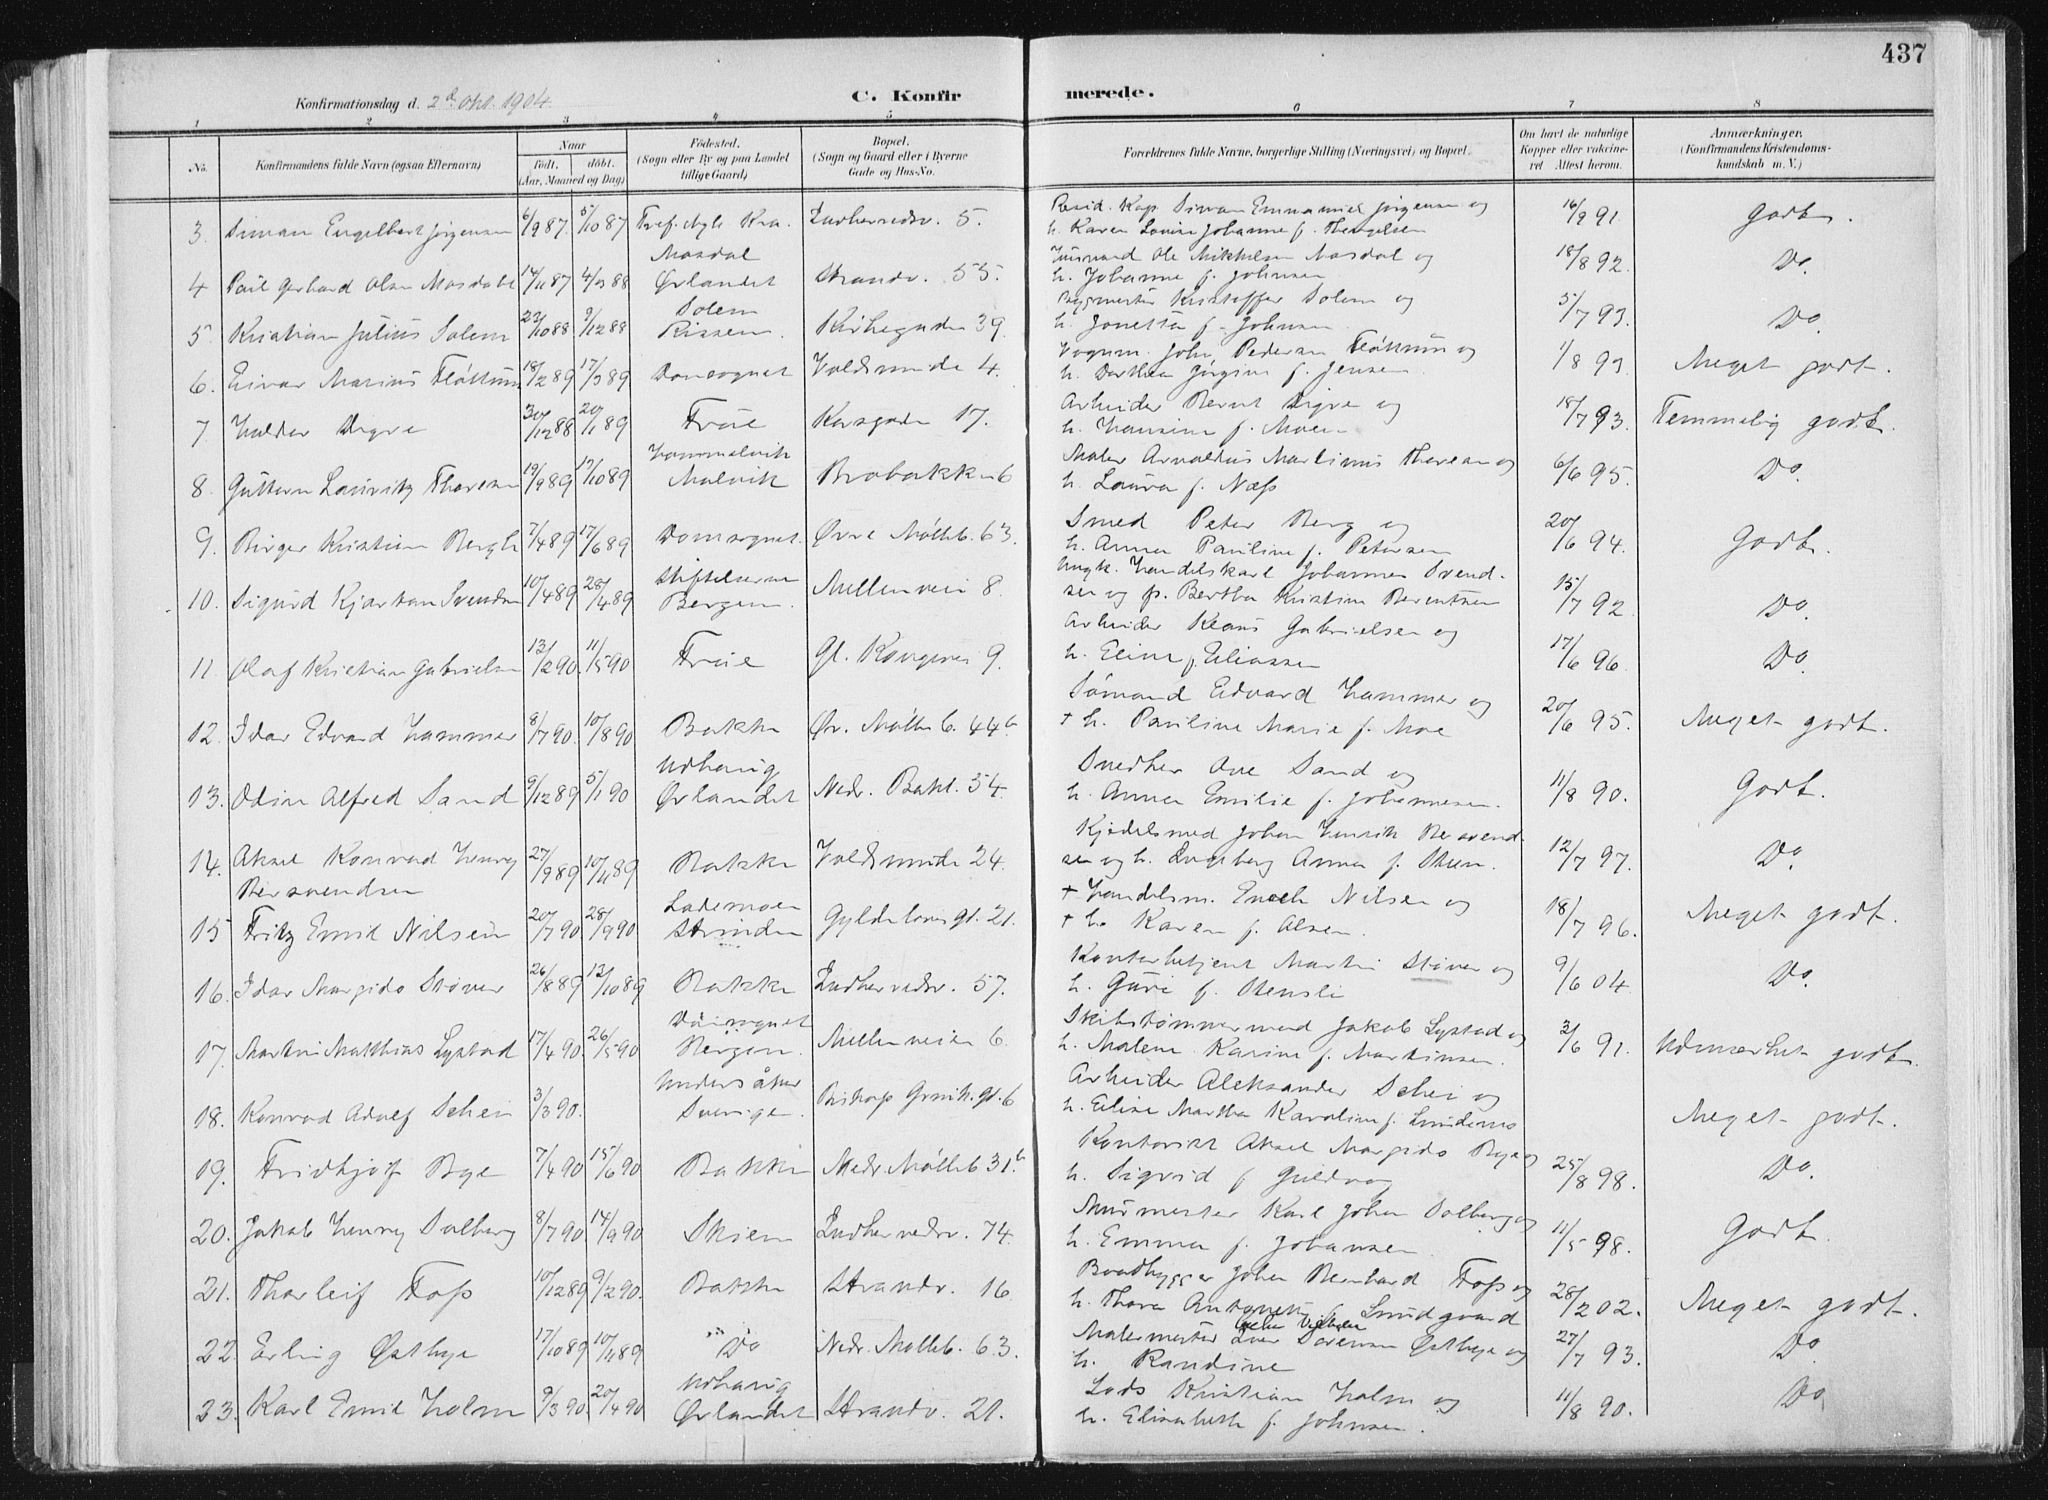 437
Konfirmationsdag d. 2d Okt. 1904.
C. Konfirmerede.
1 2 3 4 5 6 7 8
No.
Konfirmandens fulde Navn (ogsaa Efternavn)
Naar
født. døbt.
(Aar, Maaned og Dag)
Fødested.
(Sogn eller By og paa Landet
tillige Gaard)
Bopæl.
(Sogn og Gaard eller i Byerne
Gade og Hus-No.
Forældrenes fulde Navne, borgerlige Stilling (Næringsvei) og Bopæl.
Om havt de naturlige
Kopper eller vakcine-
ret Attest herom.
Anmærkninger.
(Konfirmandens Kristendoms-
kundskab m. V.)
3. Simon Engelbert Jørgensen 6/9 87. 5/10 87 Kra. Indherredsv. 5. Resid. Kap. Simon Emmanuel Jørgensen og
h. Karen Louise Johanne f. Thengelsen 16/9 91. Godt.
4 Paul Gerhard Olsen Masdal 14/11 87 4/3 88 Masdal
Ørlandet Strandv. 55. Husmand Ole Mikkelsen Masdal og
h. Johanne f. Johnsen 18/8 92. Do.
5. Kristian Julius Solem 23/10 88 9/12 88 Solem
Rissen. Kirkegaden 39. Bygmester Kristoffer Solem og
h. Jonetta f. Johnsen 5/7 93. Do.
6. Einar Marius Fløttum 18/2 89 17/3 89 Domsognet Voldsminde 4. Vognm. John Pedersen Fløttum og
h. Dorthea Jørgine f. Jensen. 1/8 93. Meget godt.
7 Haldor Digre 30/12 88 20/1 89 Frue Korsgaden 17. Arbeider Bernt Digre og
h. Hansine f. Moen 18/7 93. Temmelig godt.
8. Guttorm Lauritz Thoresen 19/9 89 17/10 89 Hommelvik
Malvik Brobakken 6 Maler Arnoldus Martinus Thoresen og
h. Laura f. Næss 6/6 95. Do.
9. Birger Kristian Bergh 7/4 89 17/6 89 Domsognet. Øvre Mølleb. 63. Smed Peter Berg og
h. Anna Pauline f. Petersen 20/6 94. Godt.
10. Sigurd Kjartan Svendsen 10/4 89 28/4 89 Stiftelserne
Bergen. Mellemveien 8. Ungk. Handelskarl Johannes Svend-
sen og p. Bertha Kristine Berentsen 15/7 92 Do.
11. Olaf Kristian Gabrielsen 13/2 90. 11/5 90 Frue Gl. Kongevei 9. Arbeider Klaus Gabrielsen og
h. Eline f. Eliassen 17/6 96. Do.
12. Idar Edvard Hammer 8/7 90. 10/8 90 Bakke Øv. Mølleb. 44b Sømand Edvard Hammer og
+ h. Pauline Marie f. Moe 20/6 95. Meget godt.
13. Odin Alfred Sand 9/12 89 5/1 90 Udhaug
Ørlandet Nedr. Bakl. 54. Snedker Ove Sand og
h. Anna Emilie f. Johannesen. 11/8 90. Godt.
14. Aksel Konrad Henry
Bersvendsen 27/9 89 10/11 89 Bakke Voldsminde 24. Kjedelsmed Johan Henrik Bersvend-
sen og h. Ingeborg Anna f. Steen. 12/7 97. Do.
15 Fritz Emil Nilsen 20/7 90. 28/9 90 Lademoen
Strinden Gyldenløves gt. 21. + Handelsm. Enoch Nilsen og
+ h. Karen f. Olsen. 18/7 96. Meget godt.
16. Idar Margido Støver 26/8 89 13/10 89 Bakke Indherredsv. 57. Kontorbetjent Martin Støver og
h. Guri f. Stensli 9/6 04. Do.
17. Martin Matthias Lystad 17/4 90. 26/5 90 Domsognet
Bergen. Mellemveien 6. Skibstømmermand Jakob Lystad og
h. Malene Karine f. Martinsen. 3/6 91. Udmærket godt.
18. Konrad Adolf Schei 3/3 90. Undersåker
Sverige. Biskop Grimk. gt. 6 Arbeider Aleksander Schei og
h. Elise Martha Karoline f. Meget godt.
19. Fridthjof Bye 7/4 90 15/6 90 Bakke Nedr. Mølleb. 31b Kontorist Aksel Margido Bye og
h. Sigrid f. Guldvog 25/8 98. Do.
20. Jakob Henry Solberg 8/7 90 14/9 90 Skien Indherredsv. 74. Murmester Karl Johan Solberg og
h. Emma f. Johansen. 11/5 98. Godt.
21. Thorleif Foss 10/12 89 9/2 90. Bakke Strandv. 16. Baadbygger Johan Bernhard Foss og
h. Thora Antonette f. Smidgaard 28/2 02. Meget godt.
22. Erling Østbye 17/10 89 10/11 89 Do Nedr. Mølleb. 63. Malermester Iver Sørensen Østbye og
h. Randine 27/7 93. Do.
23. Karl Emil Holm 9/3 90. 20/4 90 Udhaug
Ørlandet Strandv. 21. Lods Kristian Holm og
h. Elisabeth f. Johnsen. 11/8 90. Do.